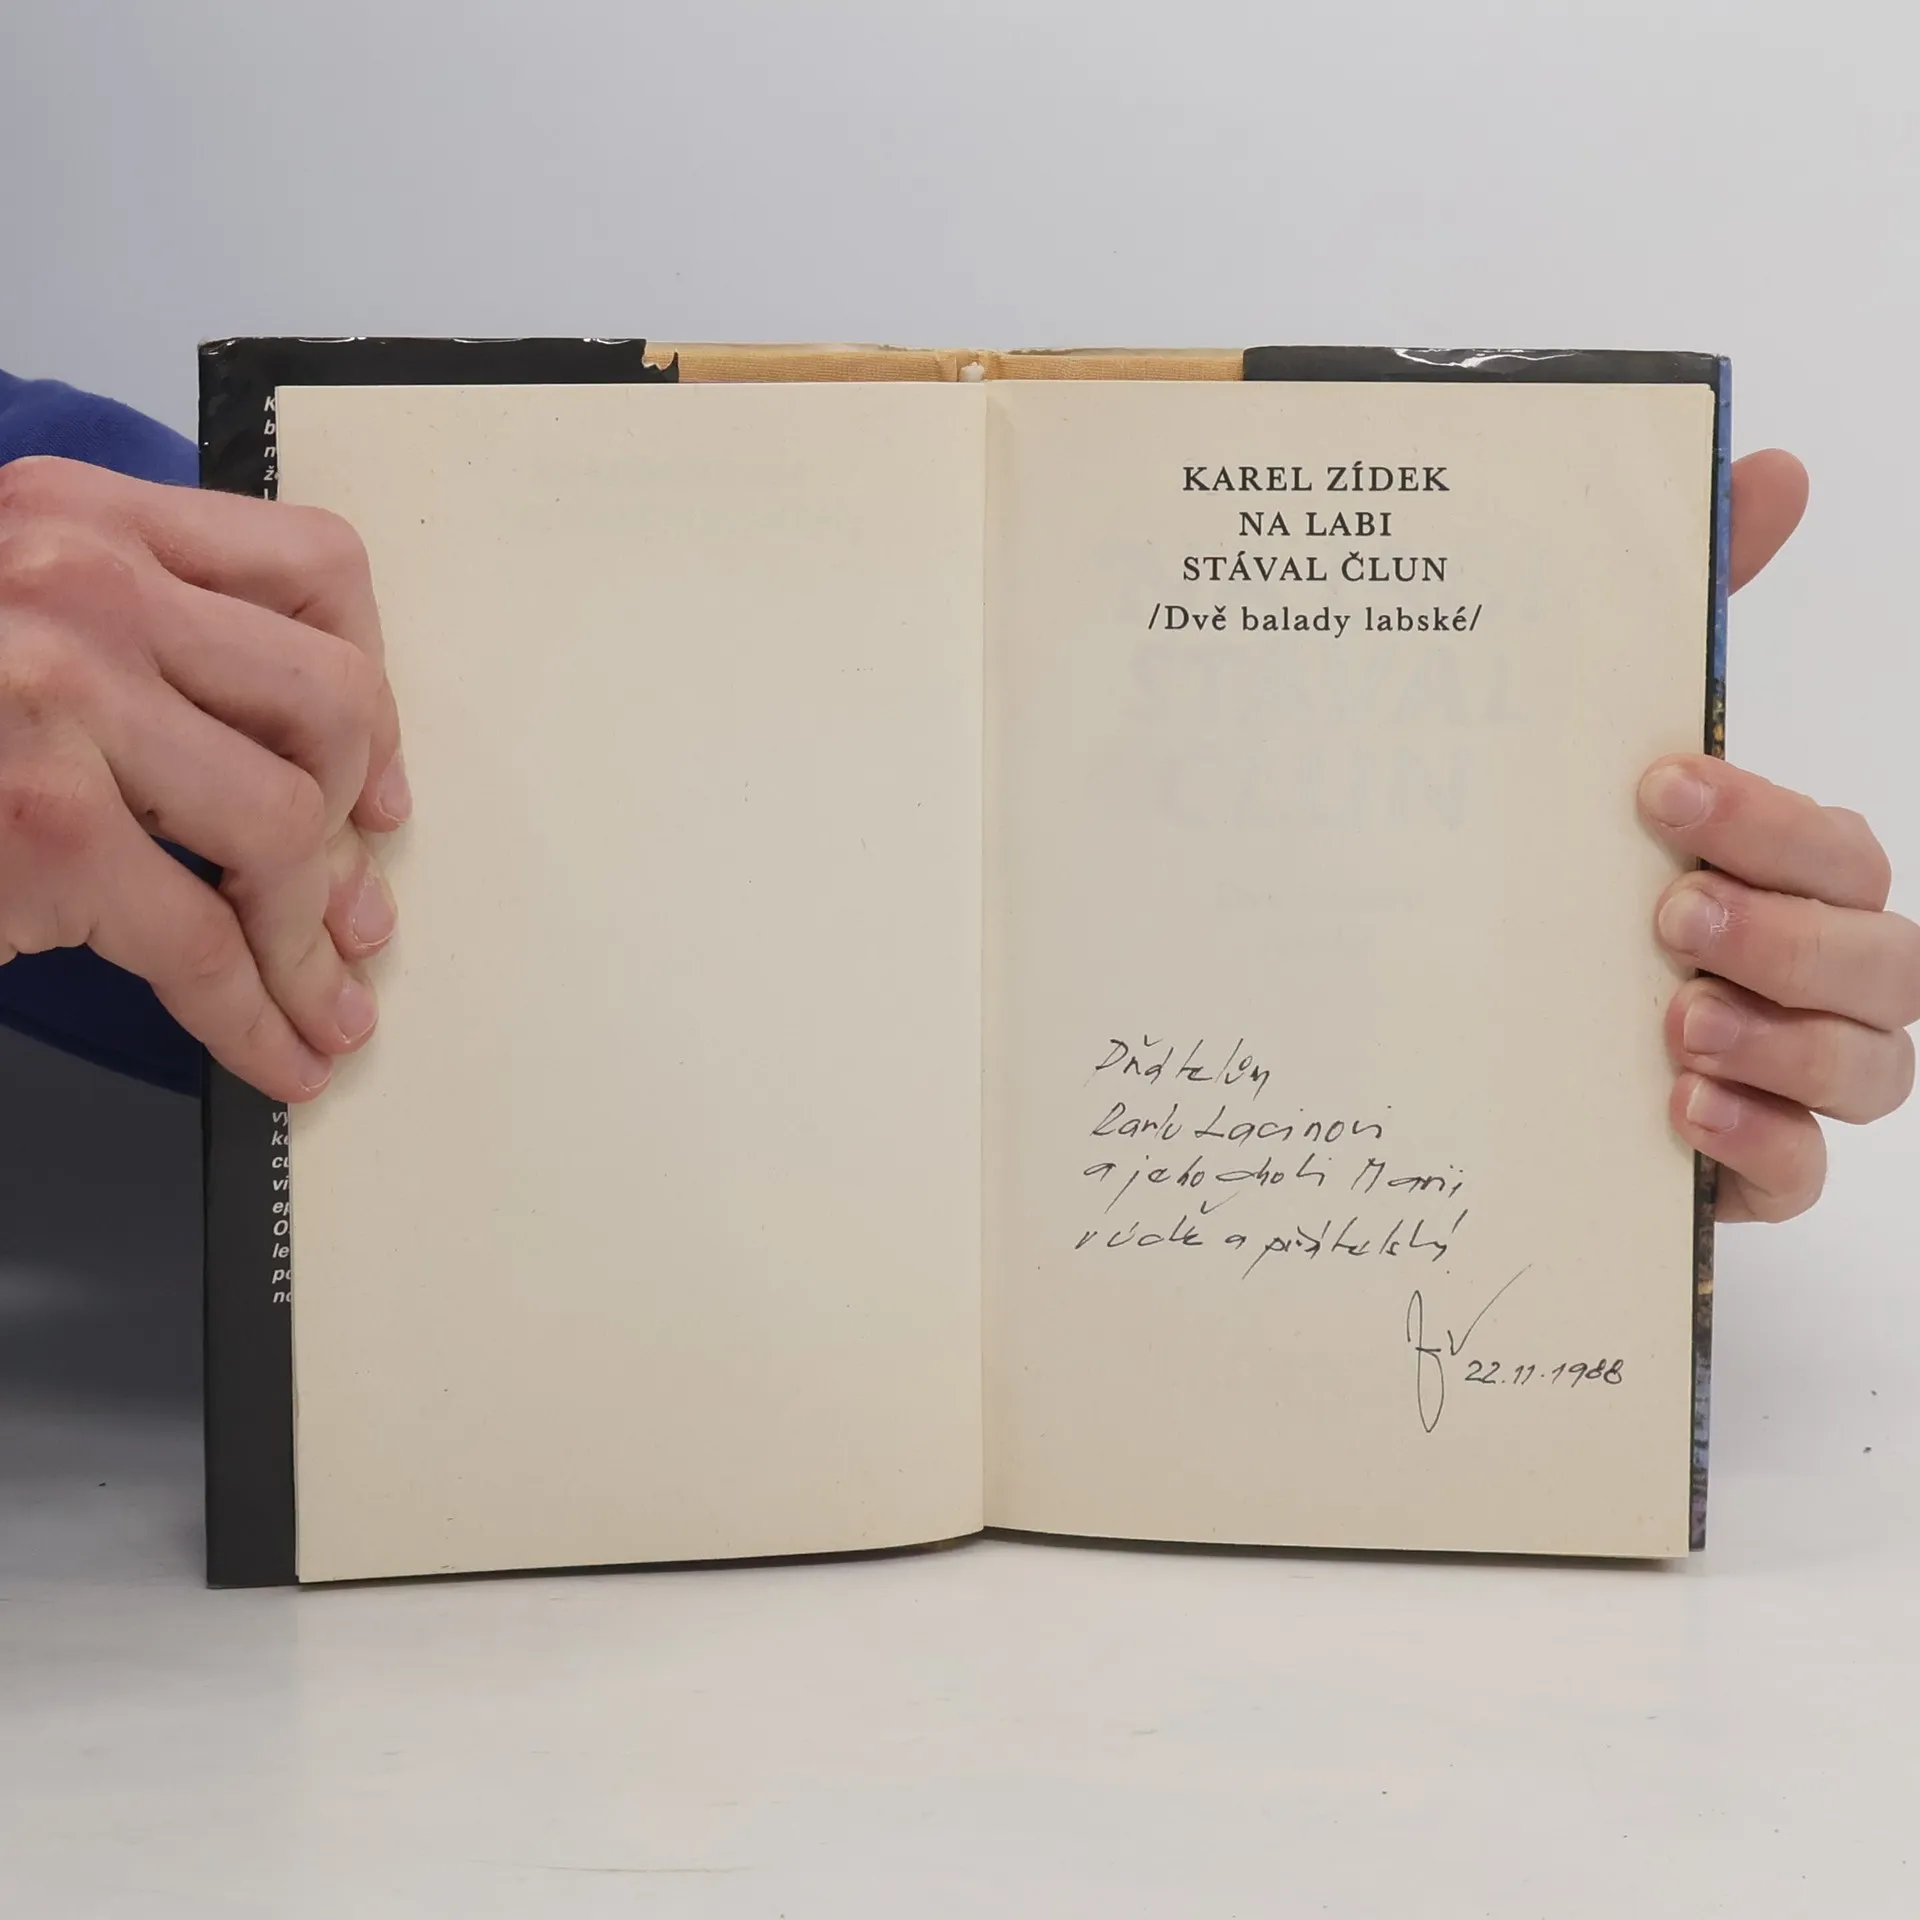 KAREL ZÍDEK
NA LABI
STÁVAL ČLUN
/Dvě balady labské/
Přátelům
Karlu Lacinovi
a jeho choti Marii
v úctě a přátelsky
22.11.1988
vy